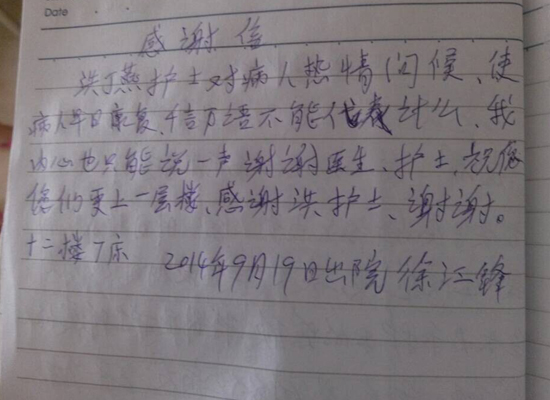 Date
感谢信
洪丁燕护士对病人热情问候、使
病人早日康复、千言万语不能代表什么、我
内心也只能说一声谢谢医生、护士、祝你
您们更上一层楼、感谢洪护士、谢谢。
十二楼7床 2014年9月19日出院 徐江锋